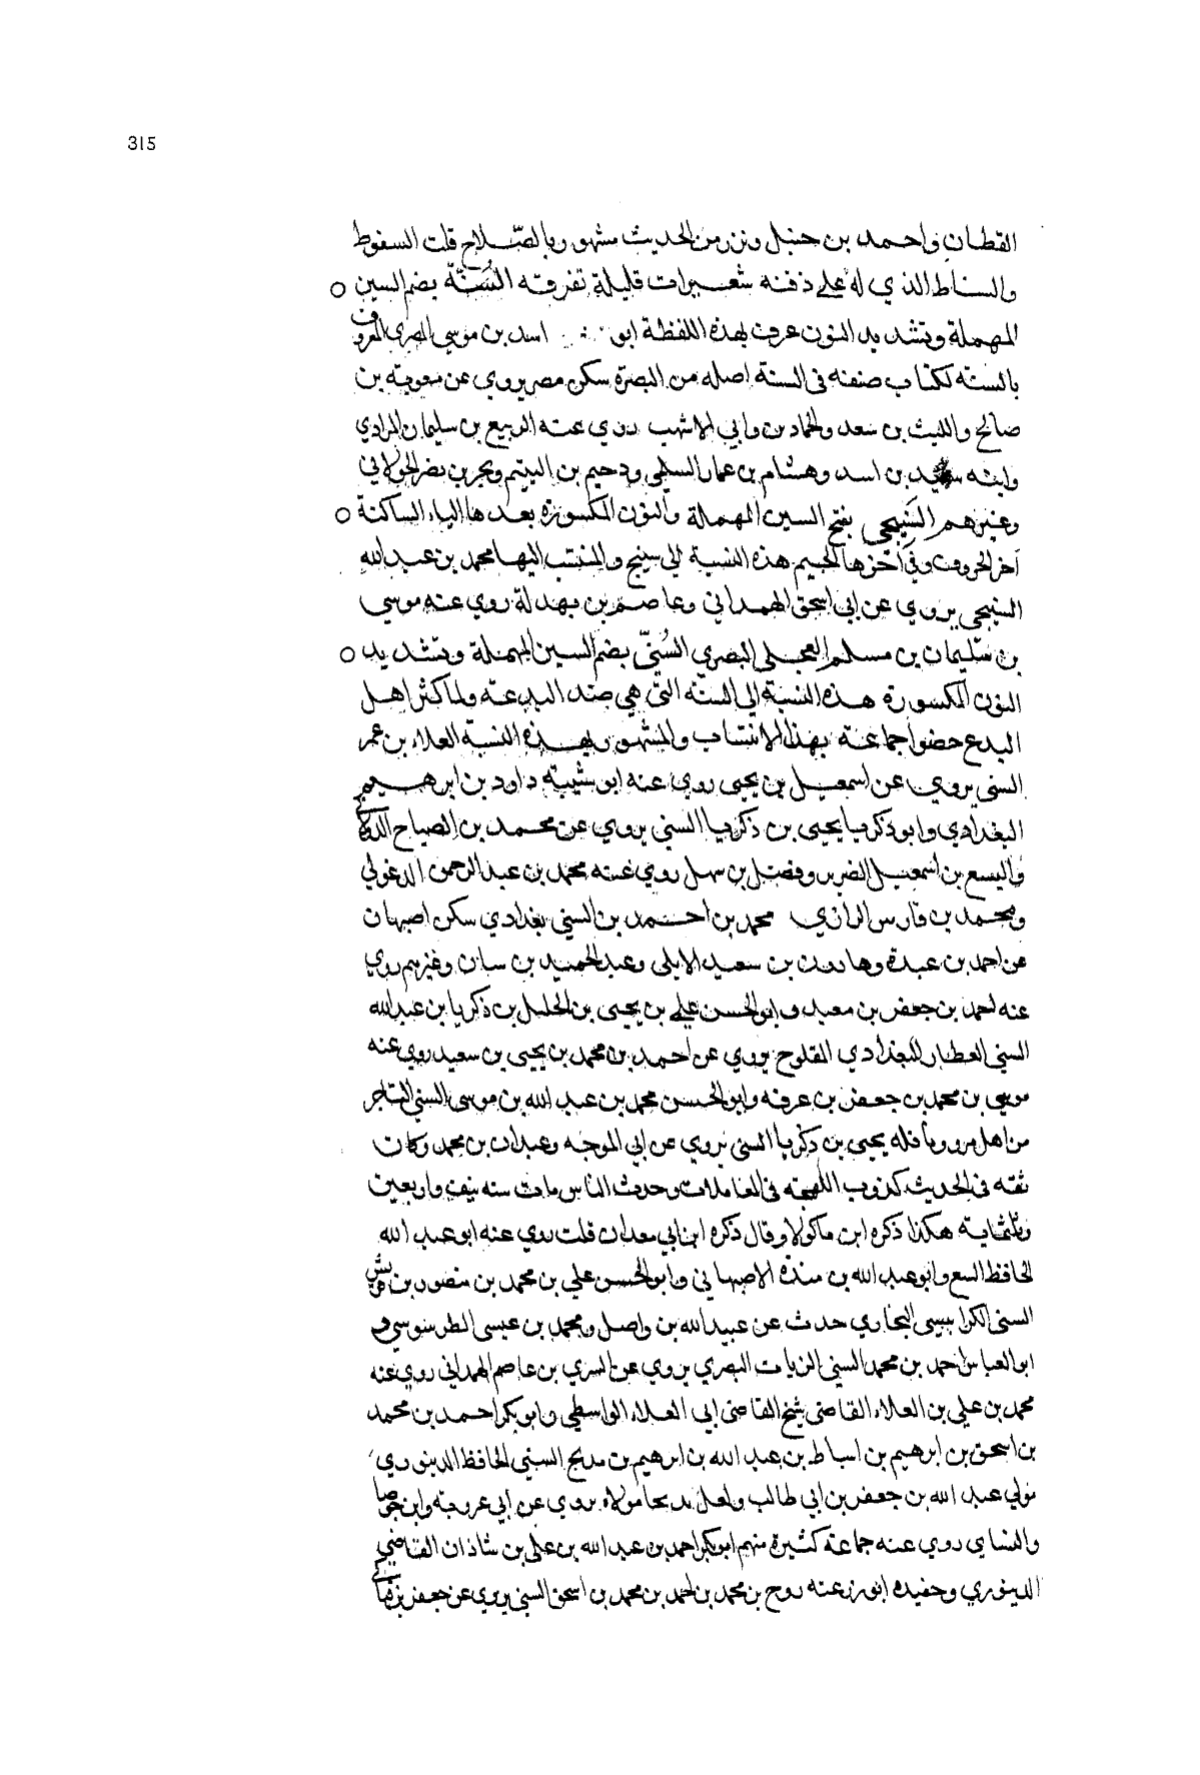 315
القطان واحمد بن حنبل ونزر من الحديث مشهور بالصلاح قلت السنوط
والسناط الذي له على ذقنه شعيرات قليلة تفرقته السُّنّة بضم السين
المهملة وتشديد النون عرف بهذه اللفظة ابو اسد بن موسى المصري المعروف
بالسنة لكتاب صنفه في السنة اصله من البصرة سكن مصر يروي عن معوية بن
صالح والليث بن سعد والحمادين وابي الاشهب روي عنه الربيع بن سليمان المرادي
وابنه سعيد بن اسد وهشام بن عمار السلمي ودحيم بن اليتيم وبحر بن نصر الخولاني
وغيرهم السَنيجي بفتح السين المهملة والنون المكسورة بعدها الياء الساكنة
آخر الحروف وفي آخرها الجيم هذه النسبة الي سنيج والمنتسب اليها محمد بن عبد الله
السنيجي يروي عن ابي اسحق الهمداني وعاصم بن بهدلة روي عنه موسي
بن سليمان بن مسلم العجلي البصري السُنيّ بضم السين المهملة وتشديد
النون المكسورة هذه النسبة الي السنة التي هي ضد البدعة ولما كثر اهل
البدع خصوا جماعة بهذا الانتساب والمشهور بهذه النسبة العلاء بن عمر
السني يروي عن اسمعيل بن يحيى روي عنه ابو شيبة داود بن ابرهيم
البغدادي وابو زكريا يحيى بن زكريا السني يروي عن محمد بن الصباح
واليسع بن اسمعيل الضرير وفضل بن سهل روي عنه محمد بن عبد الرحمن الدغولي
ومحمد بن فارس الرازي محمد بن احمد بن السني بغدادي سكن اصبهان
عن احمد بن عبدة وهارون بن سعيد الايلي وعبد الحميد بن سان وغيرهم روي
عنه احمد بن جعفر بن معبد وابو الحسن علي بن يحيى بن الخليل بن زكريا بن عبد الله
السني العطار البغدادي القلوح يروي عن احمد بن محمد بن يحيى بن سعيد روي عنه
موسى بن محمد بن جعفر بن عرفه وابو الحسن محمد بن عبد الله بن موسى السني التاجر
من اهل مرو وبافله يحيى بن زكريا السني يروي عن ابي الموجه وعبدان بن محمد وكان
ثقه في الحديث كذوب اللهجه في المعاملات وحدث الناس مات سنه نيف واربعين
وثلثماية هكذا ذكره ابن ماكولا وقال ذكره ابن ابي معدان قلت روي عنه ابو عبد الله
الحافظ السع وابو عبد الله بن منده الاصبهاني وابو الحسن علي بن محمد بن منصور بن
السني الكرابيسي البخاري حدث عن عبيد الله بن واصل ومحمد بن عيسى الطرسوسي و
ابو العباس احمد بن محمد السني الزيات البصري يروي عن السري بن عاصم الهمداني روي عنه
محمد بن علي بن العلاء القاضي شيخ القاضي ابي العلاء الواسطي وابو بكر احمد بن محمد
بن اسحق بن ابرهيم بن اسباط بن عبد الله بن ابرهيم بن بديح السني الحافظ الدينوري
مولي عبد الله بن جعفر بن ابي طالب ولعل بديحا مولاه يروي عن ابي عروبة وابن جوصا
والنساي روي عنه جماعة كثيرة منهم ابو بكر احمد بن عبد الله بن علي بن شاذان القاضي
الدينوري وحفيده ابو زرعنه روح بن محمد بن احمد بن محمد بن اسحق السني يروي عن جعفر بن